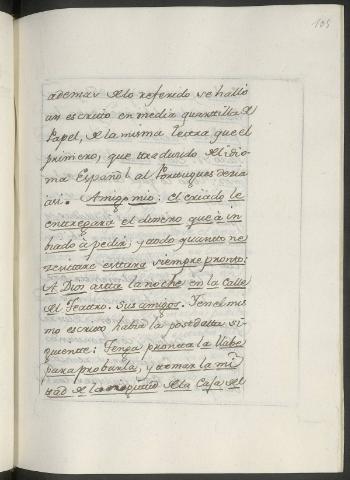 105
ademas de lo referido se halló
un escrito en media quartilla de
Papel, de la misma letra que el
primero, que traducido del idio-
ma Español al Portugues decia
asi. Amigo mio: el criado le
entregará el dinero que á in
biado á pedir, y todo quanto ne
zecitare estará siempre pronto:
A Dios asta la noche en la Calle
del Teatro. Sus amigos. Y en el mis
mo escrito habia la postdatta si-
guiente: Tenga pronta la llabe
para probarla, y tomar la mi
tad de la de la Casa del